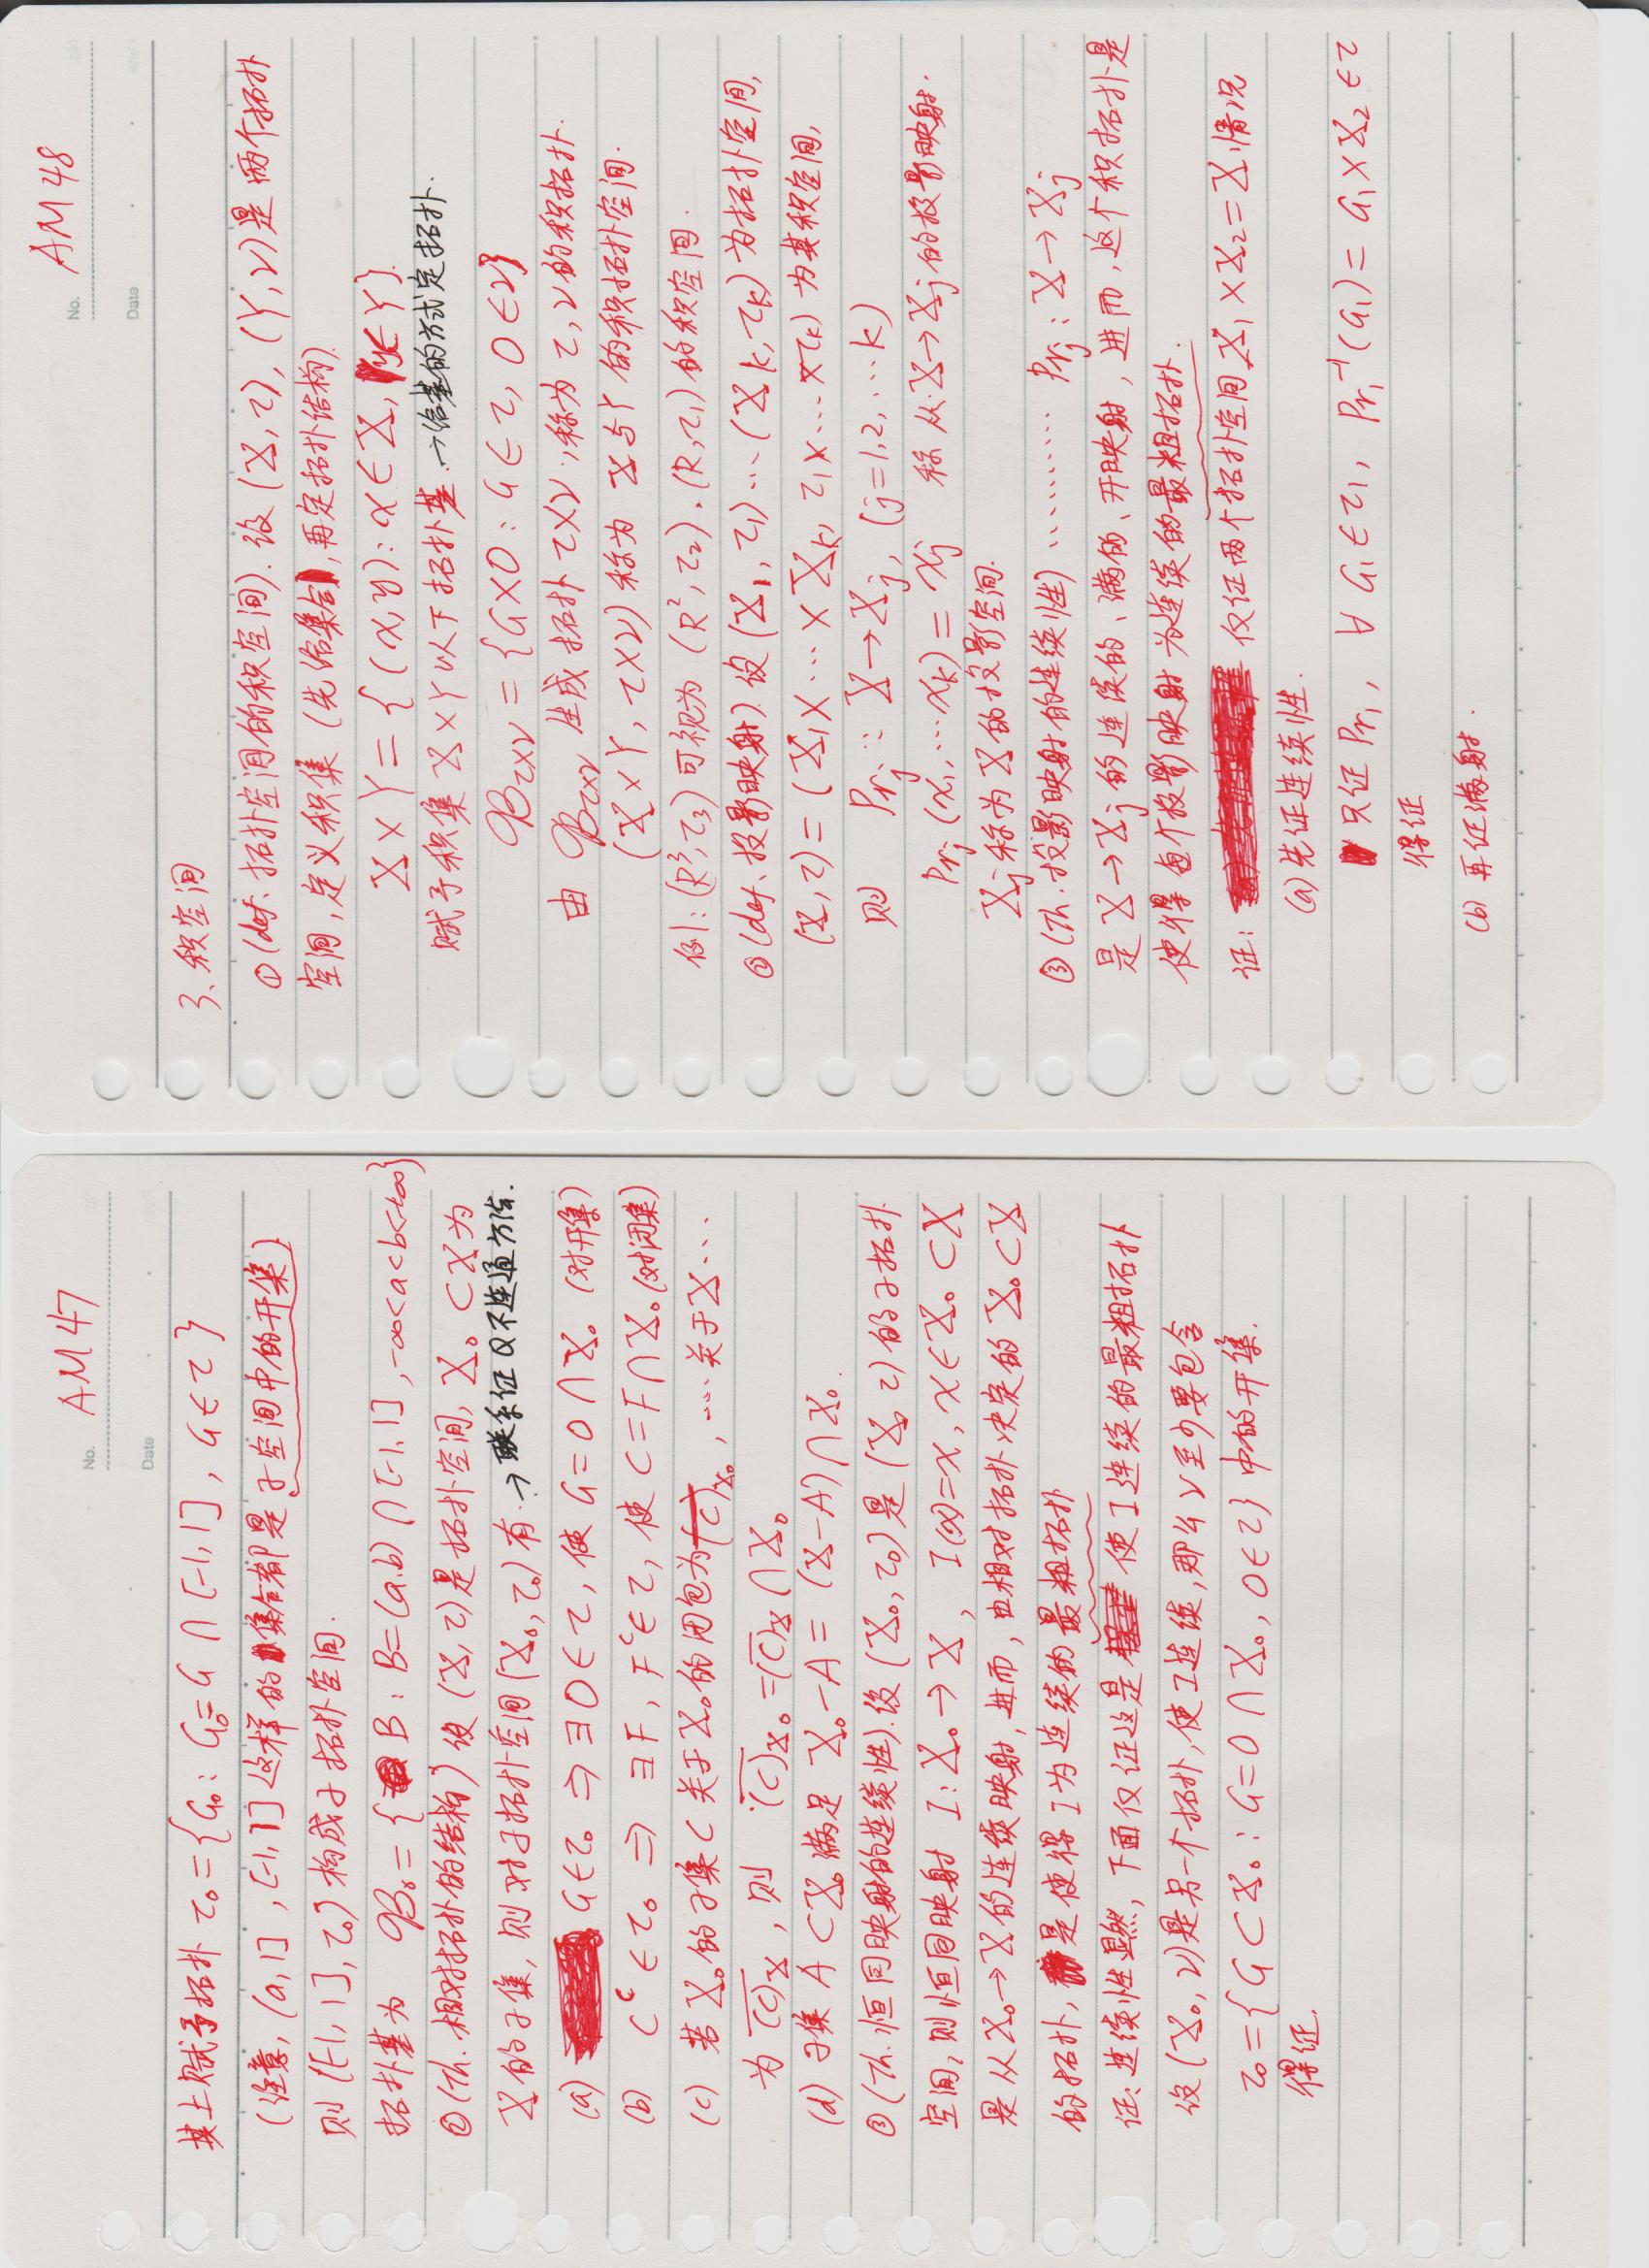 No. AM 47
Date
其上赋予拓扑 τ₀ = {G₀ : G₀ = G ∩ [-1, 1], G ∈ τ}
(注意, (a, 1], [-1, 1] 这样的集合都是子空间中的开集)
则 ([-1, 1], τ₀) 构成子拓扑空间.
拓扑基为 𝓑₀ = { B : B = (a,b) ∩ [-1, 1], -∞<a<b<+∞}
② (Th. 相对拓扑的结构) 设 (X, τ) 是拓扑空间, X₀ ⊂ X 为
X 的子集, 则对子拓扑空间 (X₀, τ₀) 有. → 联系证 Q 不连通方法.
(a) G ∈ τ₀ ⇒ ∃ O ∈ τ, 使 G = O ∩ X₀ (对开集)
(b) Cᶜ ∈ τ₀ ⇒ ∃ F, Fᶜ ∈ τ, 使 C = F ∩ X₀ (对闭集)
(c) 若 X₀ 的子集 C 关于 X₀ 的闭包为 (C̅)_X₀, … 关于 X …
为 (C̅)_X, 则 (C̅)_X₀ = (C̅)_X ∩ X₀
(d) 子集 A ⊂ X₀ 满足 X₀ - A = (X - A) ∩ X₀.
③ (Th. 恒同映射的连续性). 设 (X₀, τ₀) 是 (X, τ) 的子拓扑
空间, 则恒同映射 I : X₀ → X, I(x) = x, x ∈ X₀ ⊂ X
是从 X₀ → X 的连续映射, 进而, 由相对拓扑决定的 X₀ ⊂ X
的拓扑, 是使得 I 为连续的最粗拓扑
证: 连续性显然, 下面仅证这是使 I 连续的最粗拓扑
设 (X₀, ν) 是另一个拓扑, 使 I 连续, 那么 ν 至少要包含
τ₀ = {G ⊂ X₀ : G = O ∩ X₀, O ∈ τ} 中的开集.
得证.
No. AM 48
Date
3、积空间
① (def. 拓扑空间的积空间). 设 (X, τ), (Y, ν) 是两个拓扑
空间, 定义积集 (先给集合, 再定拓扑结构).
X × Y = { (x, y) : x ∈ X, y ∈ Y }.
赋予积集 X × Y 以下拓扑基. → 给基的方式定拓扑.
𝓑_τ×ν = {G × O : G ∈ τ, O ∈ ν}
由 𝓑_τ×ν 生成拓扑 τ×ν, 称为 τ, ν 的积拓扑.
(X × Y, τ×ν) 称为 X 与 Y 的积拓扑空间.
例1: (R³, τ₃) 可视为 (R², τ₂), (R, τ₁) 的积空间.
② (def. 投影映射). 设 (X₁, τ₁) … (X_k, τ_k) 为拓扑空间,
(X, τ) = (X₁ × … × X_k, τ₁ × … × τ_k) 为其积空间,
则 Pr_j : X → X_j, (j = 1, 2, … k)
Pr_j (x₁, … x_k) = x_j 称从 X → X_j 的投影映射.
X_j 称为 X 的投影空间.
③ (Th. 投影映射的连续性) ………… Pr_j : X → X_j
是 X → X_j 的连续的、满的、开映射, 进而, 这个积拓扑是
使得每个投影映射为连续的最粗拓扑.
证: 仅证两个拓扑空间 X₁ × X₂ = X 情况
(a) 先证连续性.
只证 Pr₁, ∀ G₁ ∈ τ₁, Pr₁⁻¹(G₁) = G₁ × X₂ ∈ τ
得证
(b) 再证满射.